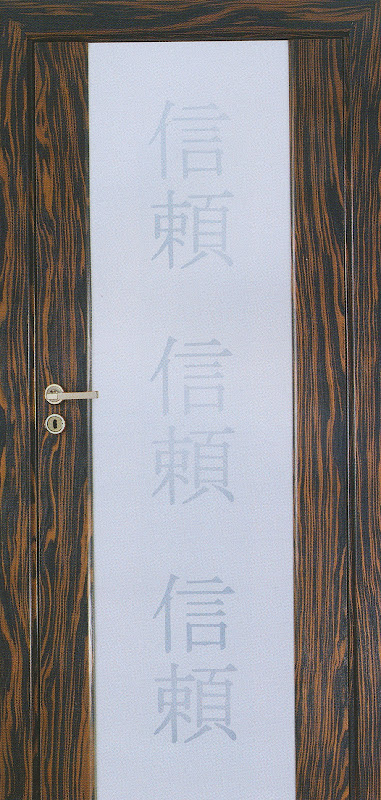 信
頼
信
頼
信
頼